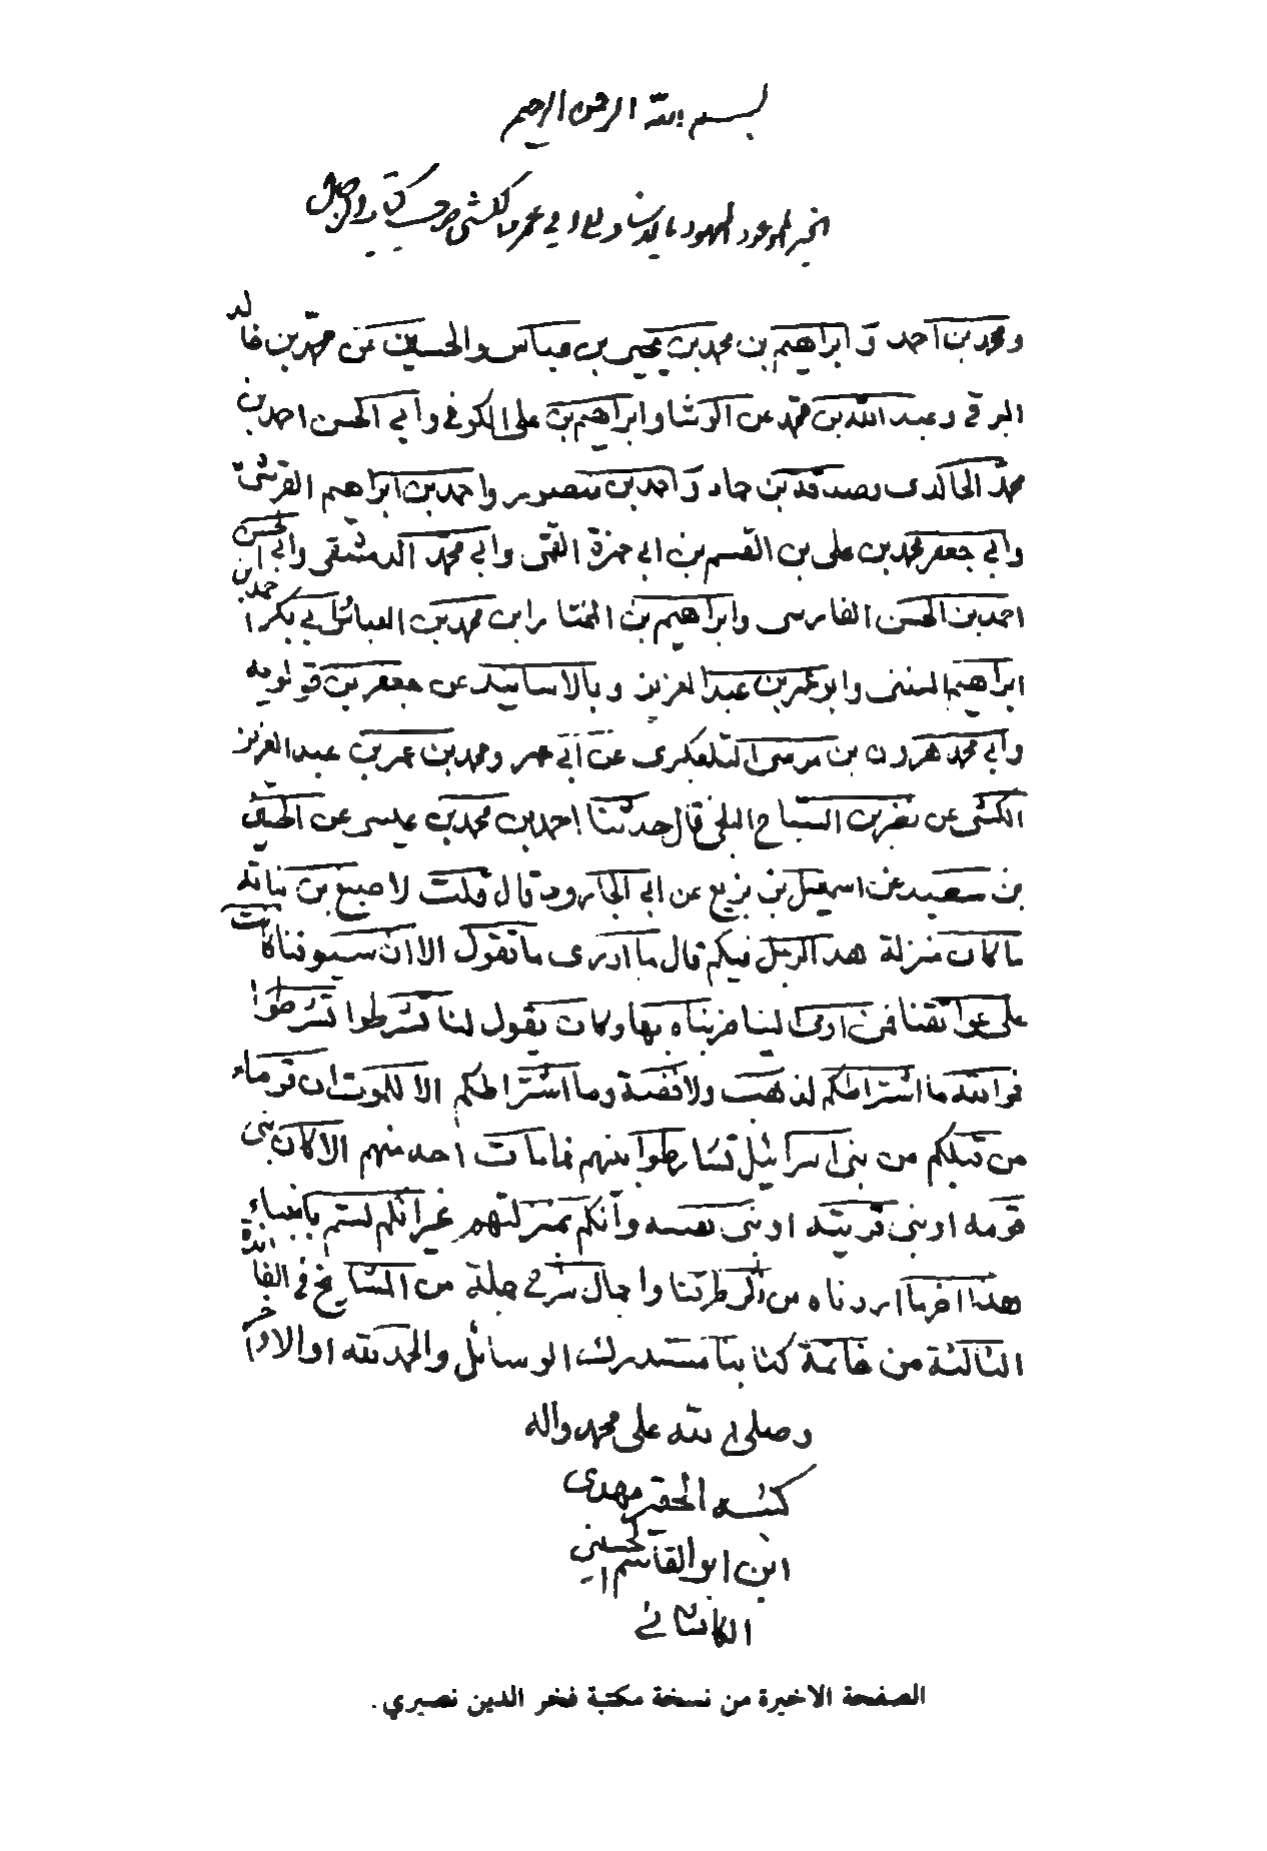 بسم الله الرحمن الرحيم
الخبر الموعود المعهود
ومحمد بن احمد و ابراهيم بن محمد بن يحيى بن عباس والحسين عن محمد بن خالد
البرقي وعبد الله بن محمد عن الوشا وابراهيم بن على الكوفي وابي الحسن احمد بن
محمد الخالدى وصدقة بن حماد و احمد بن منصور واحمد بن ابراهيم القرشى
وابي جعفر محمد بن على بن القسم بن ابي حمزة القمى وابي محمد الدمشقى وابي الحسن
احمد بن الحسن الفارسى وابراهيم بن المختار ابن محمد بن العباس ابي بكر احمد بن
ابراهيم السنسنى وابو عمر بن عبد العزيز و بالاسانيد عن جعفر بن قولويه
وابي محمد هرون بن موسى التلعكبرى عن ابي عمر ومحمد بن عمر بن عبد العزيز
الكشى عن نصر بن الصباح البلخى قال حدثنا احمد بن محمد بن عيسى عن الحسين
بن سعيد عن اسمعيل بن بزيع عن ابي الجارود قال قلت لاصبع بن نباته
ما كان منزلة هذا الرجل فيكم قال ما ادرى ما تقول الا ان سيوفنا كانت
على عواتقنا فمن اومى الينا ضربناه بها وكان يقول لنا تشرطوا تشرطوا
فوالله ما اشتراطكم لذهب ولا فضة وما اشتراطكم الا للموت ان قوما
من قبلكم من بنى اسرائيل تشارطوا بينهم فما مات احد منهم الا كان نبى
قومه او نبى قريته او نبى نفسه وانكم بمنزلتهم غير انكم لستم بانبياء
هذا اخر ما اردناه من ذكر طرقنا واجمال شرح جملة من المشايخ في الفائدة
الثالثة من خاتمة كتابنا مستدرك الوسائل والحمد لله اولا واخرا
وصلى الله على محمد واله
كتبه الحقير مهدى
ابن ابو القاسم الحسيني
الكاشاني
الصفحة الاخيرة من نسخة مكتبة فخر الدين نصيري .